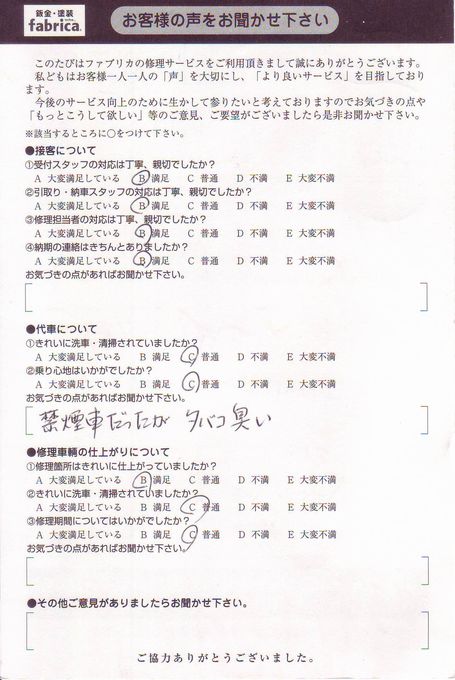 鈑金・塗装
fabrica.
お客様の声をお聞かせ下さい
このたびはファブリカの修理サービスをご利用頂きまして誠にありがとうございます。
私どもはお客様一人一人の「声」を大切にし、「より良いサービス」を目指しており
ます。
今後のサービス向上のために生かして参りたいと考えておりますのでお気づきの点や
「もっとこうして欲しい」等のご意見、ご要望がございましたら是非お聞かせ下さい。
※該当するところに○をつけて下さい。
●接客について
①受付スタッフの対応は丁寧、親切でしたか?
A 大変満足している B 満足 C 普通 D 不満 E 大変不満
②引取り・納車スタッフの対応は丁寧、親切でしたか?
A 大変満足している B 満足 C 普通 D 不満 E 大変不満
③修理担当者の対応は丁寧、親切でしたか?
A 大変満足している B 満足 C 普通 D 不満 E 大変不満
④納期の連絡はきちんとありましたか?
A 大変満足している B 満足 C 普通 D 不満 E 大変不満
お気づきの点があればお聞かせ下さい。
●代車について
①きれいに洗車・清掃されていましたか?
A 大変満足している B 満足 C 普通 D 不満 E 大変不満
②乗り心地はいかがでしたか?
A 大変満足している B 満足 C 普通 D 不満 E 大変不満
お気づきの点があればお聞かせ下さい。
禁煙車だったが タバコ臭い
●修理車輌の仕上がりについて
①修理箇所はきれいに仕上がっていましたか?
A 大変満足している B 満足 C 普通 D 不満 E 大変不満
②きれいに洗車・清掃されていましたか?
A 大変満足している B 満足 C 普通 D 不満 E 大変不満
③修理期間についてはいかがでしたか?
A 大変満足している B 満足 C 普通 D 不満 E 大変不満
お気づきの点があればお聞かせ下さい。
●その他ご意見がありましたらお聞かせ下さい。
ご協力ありがとうございました。